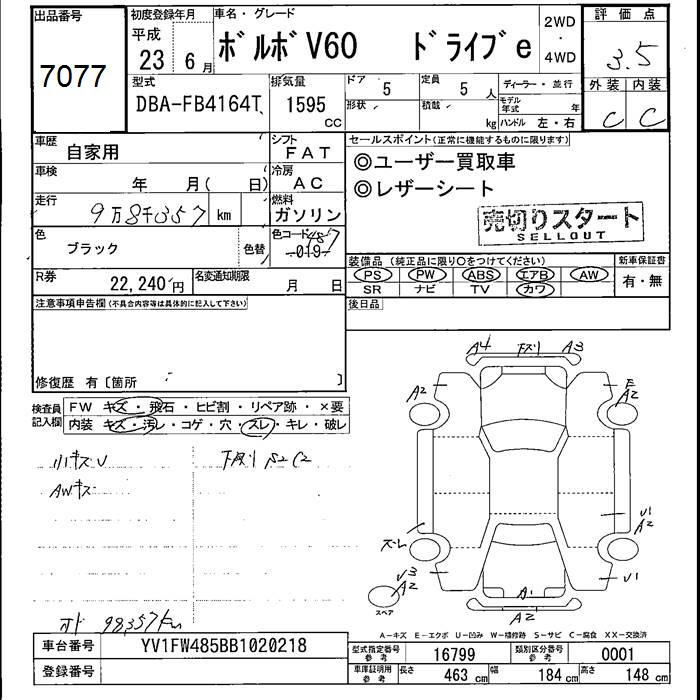 出品番号
7077
初度登録年月
平成
23 6月
車名・グレード
ボルボV60 ドライブe
2WD
・
4WD
評価点
3.5
型式
DBA-FB4164T
排気量
1595
CC
ドア 5
形状
定員 5 人
積載 kg
ディーラー・並行
モデル年式 年
ハンドル 左・右
外装 内装
C C
車歴
自家用
シフト
FAT
車検
年 月( 日)
冷房
AC
走行
9万8千357 km
燃料
ガソリン
色
ブラック
色替
色コード 487
-019-
R券
22,240円
名変通知期限
月 日
セールスポイント(正常に機能するものに限ります)
◎ユーザー買取車
◎レザーシート
売切りスタート
SELLOUT
装備品(純正品に限り○をつけてください)
PS PW ABS エアB AW
SR ナビ TV カワ
新車保証書
有・無
注意事項申告欄(不具合内容等は具体的に記入して下さい)
後日品
修復歴 有〔箇所 〕
検査員
記入欄
FW キズ・飛石・ヒビ割・リペア跡・×要
内装 キズ・汚レ・コゲ・穴・スレ・キレ・破レ
小キズU
AWキズ
下廻り S2 C2
98357km
A4 下廻り A3
A2
E
A2
U1
A2
スレ
U3
A2
スペア
U1
A1
A2
A-キズ E-エクボ U-凹み W-補修跡 S-サビ C-腐食 XX-交換済
車台番号
YV1FW485BB1020218
登録番号
型式指定番号
参考
16799
類別区分番号
参考
0001
車庫証明用
参考
長さ 463 cm 幅 184 cm 高さ 148 cm